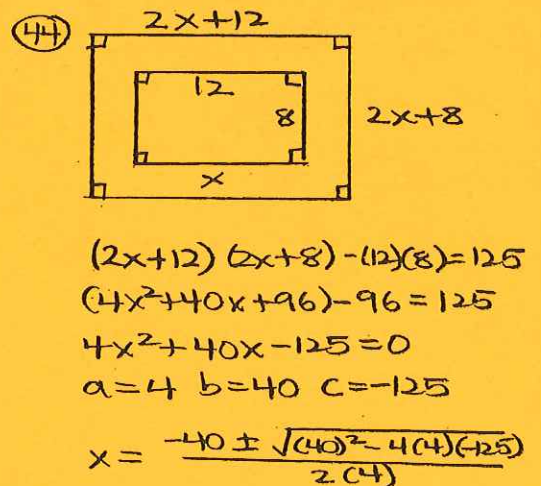 44
2x+12
12
8
2x+8
x
(2x+12)(2x+8)-(12)(8)=125
(4x²+40x+96)-96=125
4x²+40x-125=0
a=4 b=40 c=-125
x= -40 ± √(40)²-4(4)(-125)
2(4)